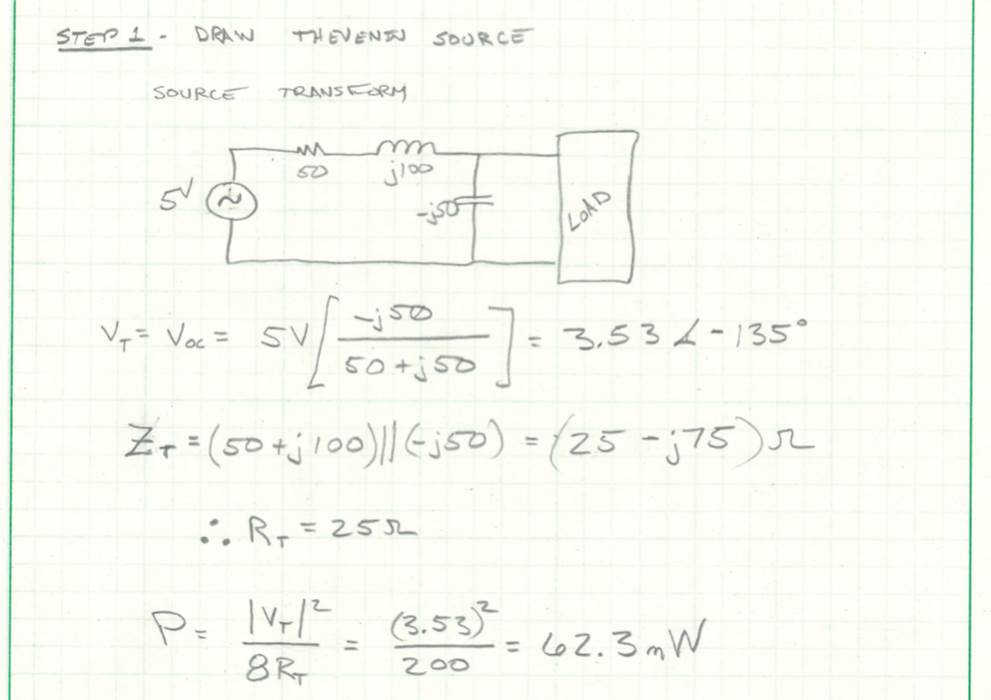 STEP 1 - DRAW THEVENIN SOURCE
SOURCE TRANSFORM
5V
~
50
j100
-j50
LOAD
V_T = V_OC = 5V[(-j50)/(50+j50)] = 3.53 ∠-135°
Z_T = (50+j100)||(-j50) = (25 -j75) Ω
∴ R_T = 25Ω
P = |V_T|²/8R_T = (3.53)²/200 = 62.3 mW